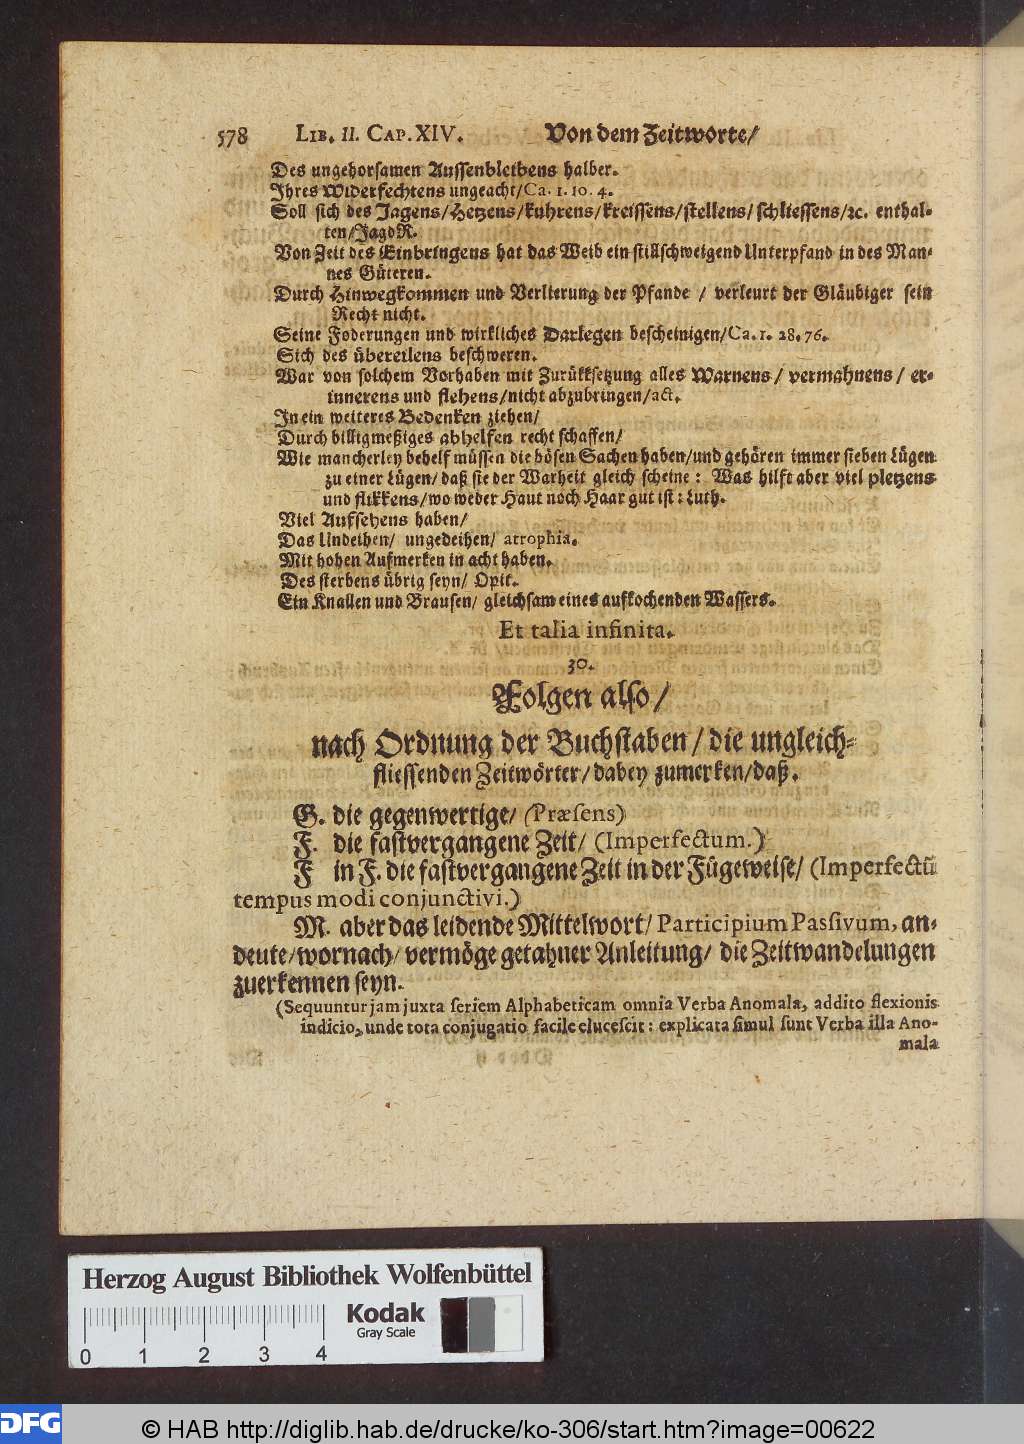 578 LIB. II. CAP. XIV. Von dem Zeitworte/
Des ungehorsamen Aussenbleibens halber.
Ihres Widerfechtens ungeacht/Ca. 1. 10. 4.
Soll sich des Jagens/Hetzens/kuhrens/kreissens/stellens/schliessens/ꝛc. enthal-
ten/JagdR.
Von Zeit des Einbringens hat das Weib ein stillschweigend Unterpfand in des Man-
nes Güteren.
Durch Hinwegkommen und Verlierung der Pfande / verleurt der Gläubiger sein
Recht nicht.
Seine Foderungen und wirkliches Darlegen bescheinigen/Ca. 1. 28. 76.
Sich des übereilens beschweren.
War von solchem Vorhaben mit Zurükksetzung alles Warnens / vermahnens / er-
innerens und flehens/nicht abzubringen/act.
In ein weiteres Bedenken ziehen/
Durch billigmeßiges abhelfen recht schaffen/
Wie mancherley behelf müssen die bösen Sachen haben/und gehören immer sieben Lügen
zu einer Lügen/ daß sie der Warheit gleich scheine: Was hilft aber viel pletzens
und flikkens/wo weder Haut noch Haar gut ist: Luth.
Viel Aufsehens haben/
Das Undeihen/ ungedeihen/ atrophia.
Mit hohen Aufmerken in acht haben.
Des sterbens übrig seyn/ Opit.
Ein Knallen und Brausen/ gleichsam eines aufkochenden Wassers.
Et talia infinita.
30.
Folgen also/
nach Ordnung der Buchstaben/ die ungleich-
fliessenden Zeitwörter/dabey zumerken/daß.
G. die gegenwertige/ (Præsens)
F. die fastvergangene Zeit/ (Imperfectum.)
F in F. die fastvergangene Zeit in der Fügeweise/ (Imperfectũ
tempus modi conjunctivi.)
M. aber das leidende Mittelwort/ Participium Passivum, an-
deute/wornach/ vermöge getahner Anleitung/ die Zeitwandelungen
zuerkennen seyn.
(Sequuntur jam juxta seriem Alphabeticam omnia Verba Anomala, addito flexionis
indicio, unde tota conjugatio facile elucescit: explicata simul sunt Verba illa Ano-
mala
Herzog August Bibliothek Wolfenbüttel
Kodak
Gray Scale
0 1 2 3 4
DFG
© HAB http://diglib.hab.de/drucke/ko-306/start.htm?image=00622